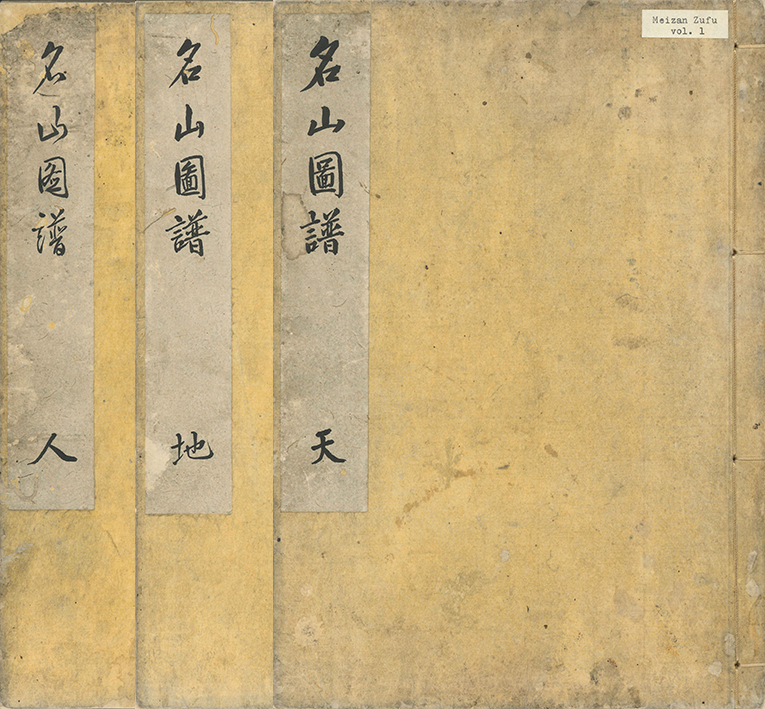 Meizan Zufu
vol. 1
名山圖譜
天
名山圖譜
地
名山图譜
人